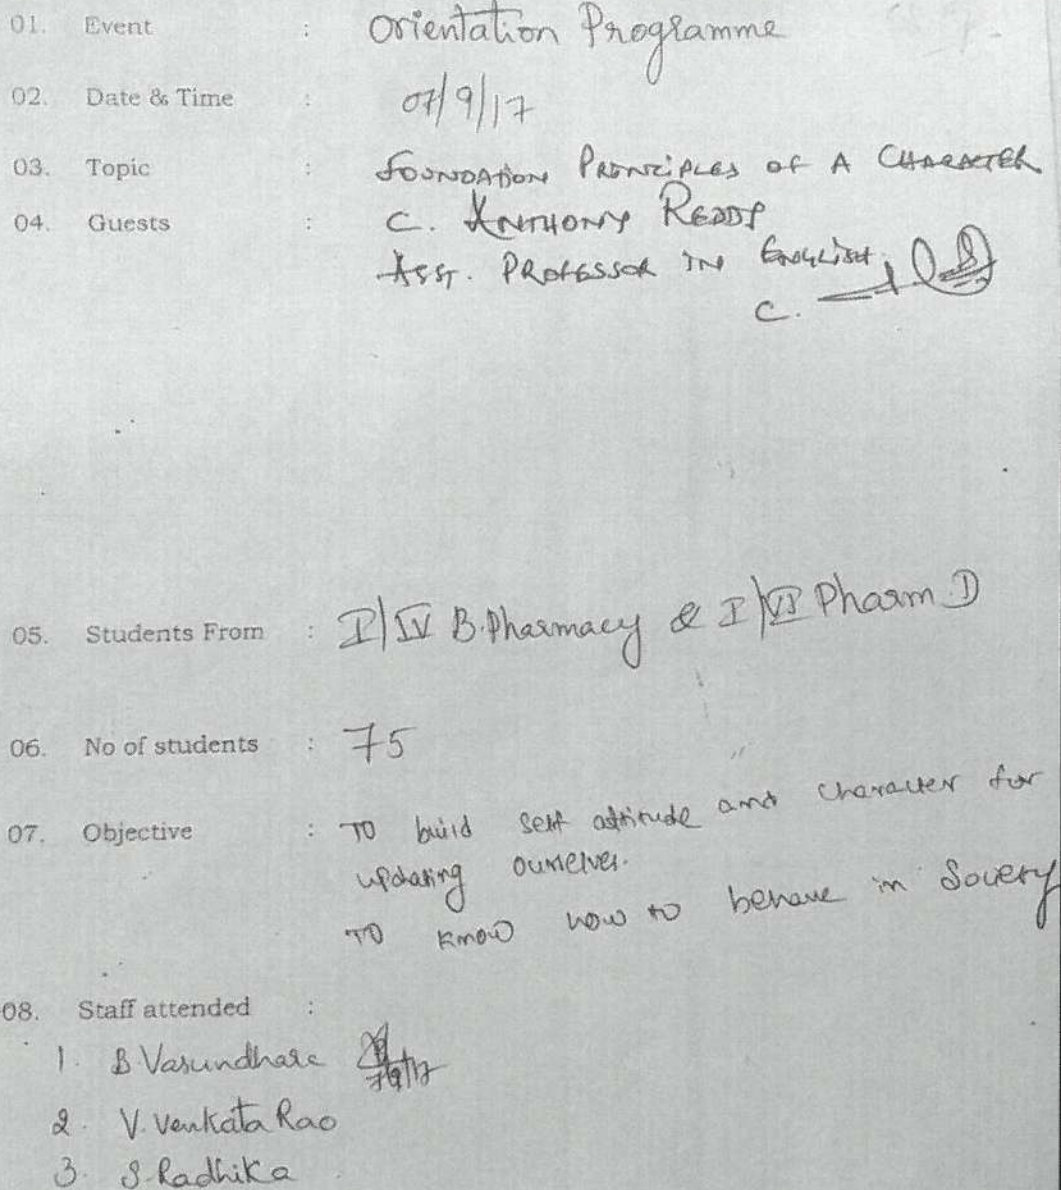 01. Event : Orientation Programme
02. Date & Time : 07/9/17
03. Topic : FOUNDATION PRINCIPLES OF A CHARACTER
04. Guests : C. ANTHONY REDDY
ASST. PROFESSOR IN ENGLISH.
C.
05. Students From : I/IV B.Pharmacy & I/VI Pharm.D
06. No of students : 75
07. Objective : TO build self attitude and character for
updating ourselves.
TO know how to behave in Society
08. Staff attended :
1. B Vasundhara 7/9/17
2. V. Venkata Rao
3. S. Radhika